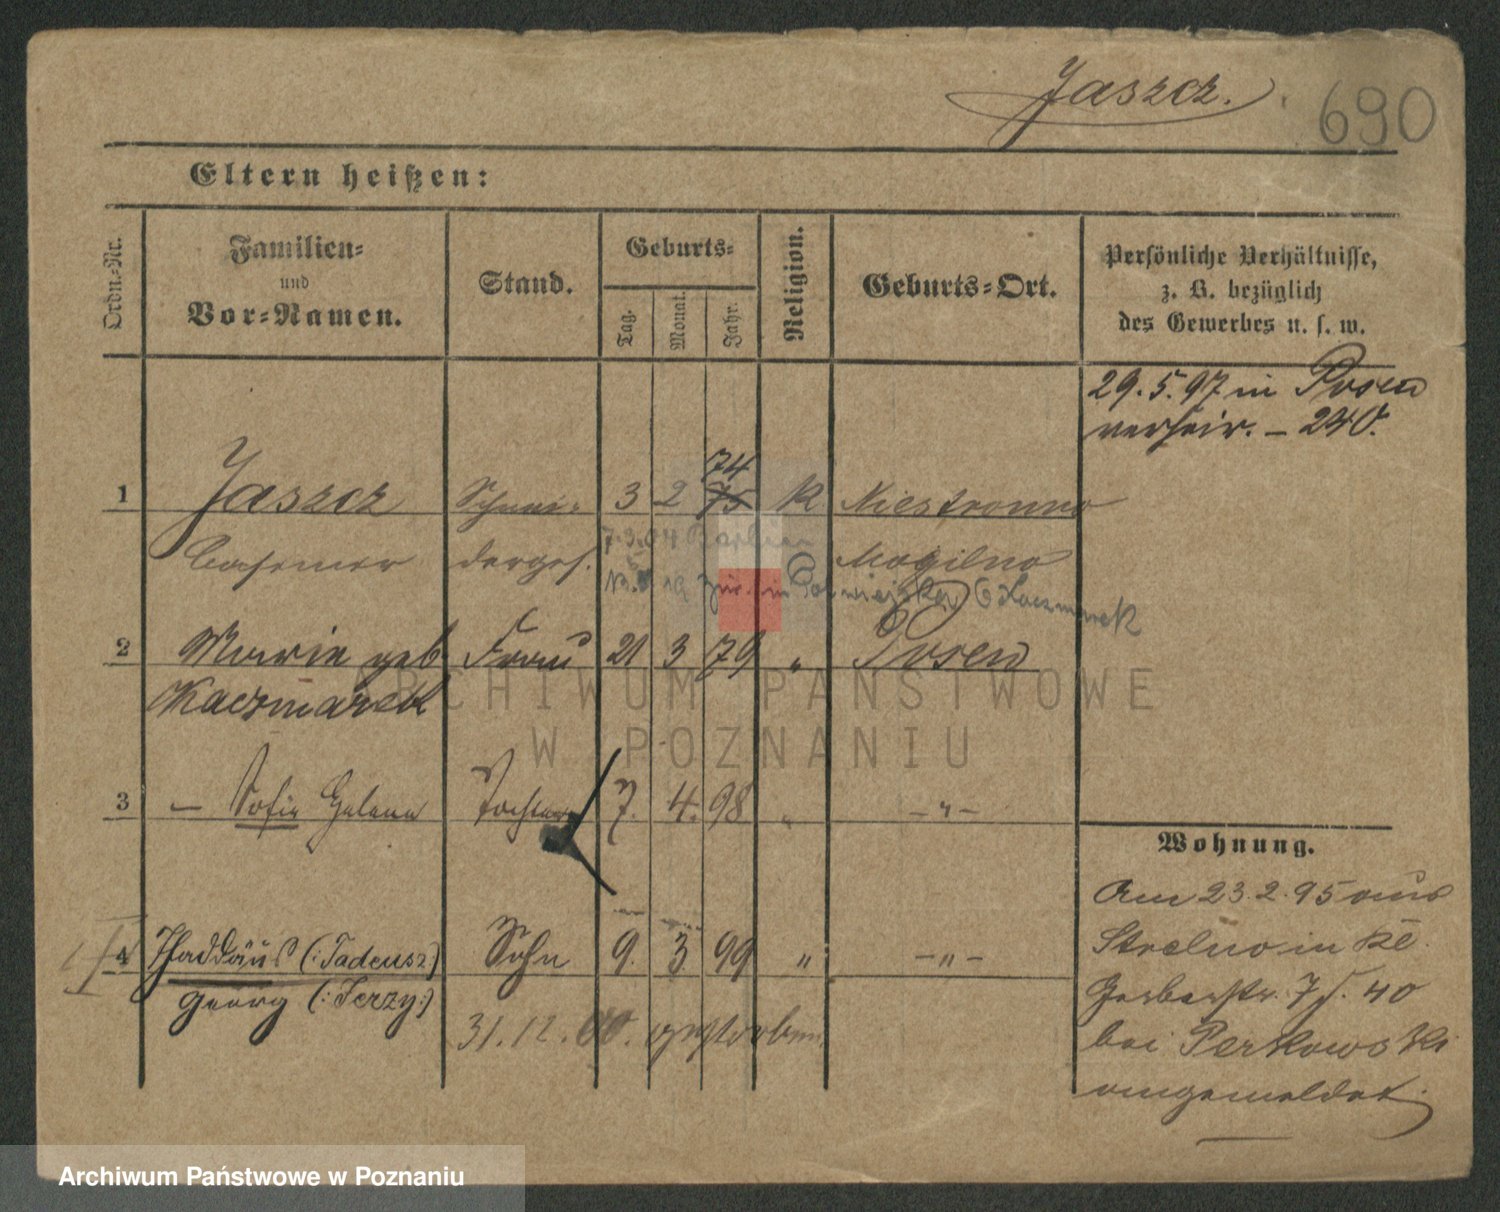 Jaszcz.
690
Eltern heißen:
Ordn.-Nr.
Familien-
und
Vor-Namen.
Stand.
Geburts-
Tag.
Monat.
Jahr.
Religion.
Geburts-Ort.
Persönliche Verhältnisse,
z. B. bezüglich
des Gewerbes u. s. w.
29.5.97 in Posen
verheir. – 240.
74
1 Jaszcz Schnei- 3 2 75 K Niestronno
Casimir derges. Mogilno
7.3.04
Kaczmarek
2 Marie geb Frau 21 3 79 " Posen
Kaczmarek
3 – Sofie Helena Tochter 7. 4. 98 " –"–
Wohnung.
Am 23.2.95 aus
Strelno in Kl.
Gerberstr. 7 40
bei Perkowski
angemeldet.
4 Thaddäus (:Tadeusz) Sohn 9. 3 99 " –"–
Georg (:Jerzy:)
31.12.00. gestorben
ARCHIWUM PAŃSTWOWE
W POZNANIU
Archiwum Państwowe w Poznaniu